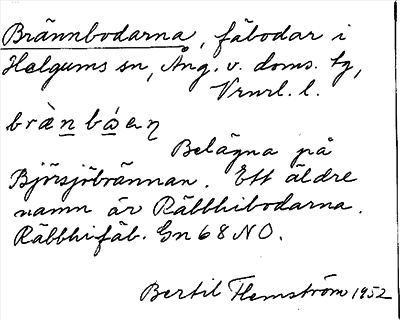 Brännbodarna, fäbodar i
Helgums sn, Ång. v. doms. tg,
Vrnrl. l.
bräǹn bɷ́aɳ
Belägna på
Björsjöbrännan. Ett äldre
namn är Räbbhibodarna.
Räbbhifäb. Gn 68 NO.
Bertil Flemström 1952